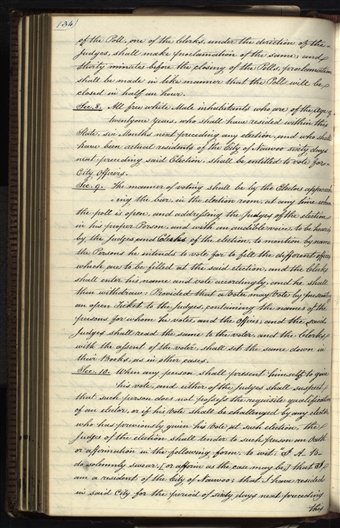 134
of the Poll, one of the Clerks, under the direction of the
Judges, shall make proclamation of the same; and
thirty minutes before the closing of the Polls, proclamation
shall be made in like manner that the Poll will be
closed in half an hour.
Sec. 8. All free white Male inhabitants who are of the age of
twentyone years, who shall have resided within this
State, six Months next preceding any election, and who shall
have been actual residents of the City of Nauvoo sixty days
next preceding said Election, shall be entitled to vote for
City Officers.
Sec. 9. The manner of voting shall be by the Electors approach
ing the bar, in the election room, at any time when
the poll is open, and addressing the Judges of the election
in his proper Person, and with an audible voice, to be heard
by the Judges and Clerks of the election, to mention by name
the Persons he intends to vote for to fill the different offices
which are to be filled at the said election, and the Clerks
shall enter his name and vote accordingly, and he shall
then withdraw: Provided that a Voter may Vote by presenting
an open Ticket to the Judges, containing the names of the
persons for whom he votes, and the offices, and the said
Judges shall read the same to the voter, and the Clerks
with the assent of the voter, shall set the same down in
their Books, as in other cases.
Sec. 10. When any person shall present himself to give
his vote, and either of the Judges shall suspect
that such person does not possess the requisite qualifications
of an elector, or if his Vote shall be challenged by any elector
who has previously given his Vote at such election, the
Judges of the election shall tender to such person an Oath
or affirmation in the following form; to wit; "I A. B.
do solemnly swear, [or affirm as the case may be] that I
am a resident of the City of Nauvoo; that I have resided
in said City for the period of sixty days next preceding
this